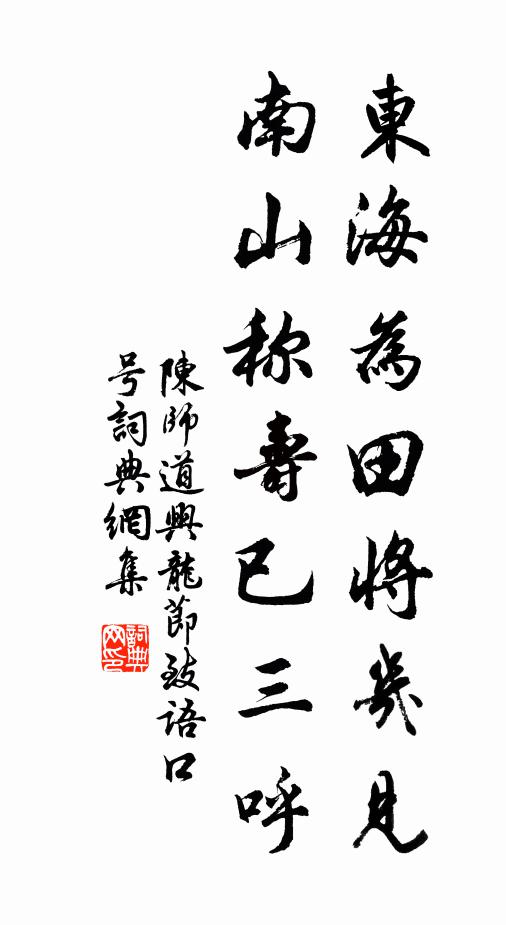 東海為田將幾見
南山称壽已三呼
陳師道興龍節致语口
号詞典網集
詞典
网印